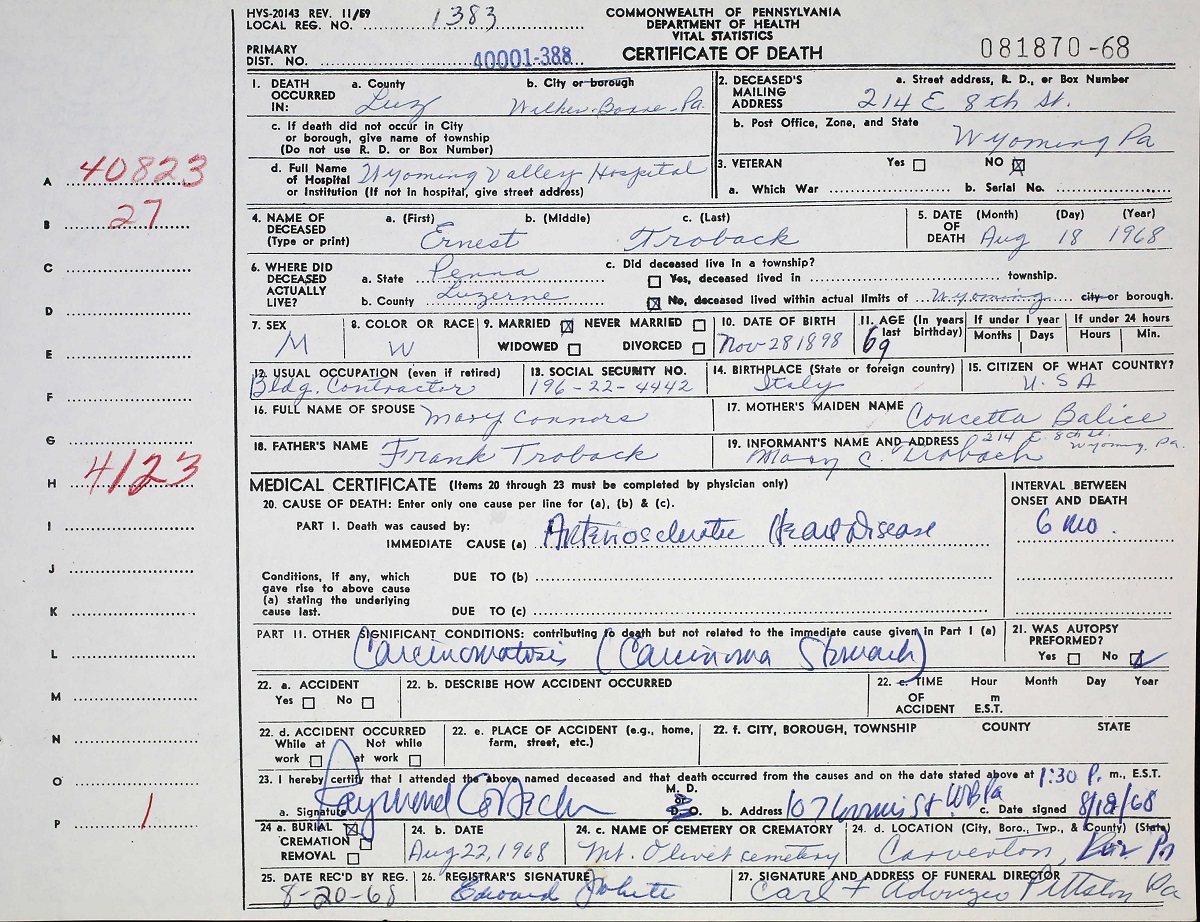 HVS-20143 REV. 11/59
LOCAL REG. NO. 1383
COMMONWEALTH OF PENNSYLVANIA
DEPARTMENT OF HEALTH
VITAL STATISTICS
CERTIFICATE OF DEATH
PRIMARY
DIST. NO. 40001-388
081870-68
1. DEATH OCCURRED IN:
a. County
Luz
b. City or borough
Wilkes-Barre-Pa.
c. If death did not occur in City
or borough, give name of township
(Do not use R. D. or Box Number)
d. Full Name
of Hospital Wyoming Valley Hospital
or Institution (If not in hospital, give street address)
2. DECEASED'S MAILING ADDRESS
a. Street address, R. D., or Box Number
214 E 8th St.
b. Post Office, Zone, and State
Wyoming Pa
3. VETERAN Yes NO
a. Which War b. Serial No.
4. NAME OF DECEASED (Type or print)
a. (First) b. (Middle) c. (Last)
Ernest Troback
5. DATE OF DEATH
(Month) (Day) (Year)
Aug 18 1968
6. WHERE DID DECEASED ACTUALLY LIVE?
a. State Penna
b. County Luzerne
c. Did deceased live in a township?
Yes, deceased lived in township.
No, deceased lived within actual limits of Wyoming city or borough.
7. SEX
M
8. COLOR OR RACE
W
9. MARRIED NEVER MARRIED
WIDOWED DIVORCED
10. DATE OF BIRTH
Nov-28 1898
11. AGE (In years last birthday)
69
If under 1 year
Months Days
If under 24 hours
Hours Min.
12. USUAL OCCUPATION (even if retired)
Bldg. Contractor
13. SOCIAL SECURITY NO.
196-22-4442
14. BIRTHPLACE (State or foreign country)
Italy
15. CITIZEN OF WHAT COUNTRY?
U.S.A
16. FULL NAME OF SPOUSE Mary Connors
17. MOTHER'S MAIDEN NAME Concetta Balice
18. FATHER'S NAME Frank Troback
19. INFORMANT'S NAME AND ADDRESS 214 E. 8th St.
Wyoming, Pa.
Mary C. Troback
MEDICAL CERTIFICATE (Items 20 through 23 must be completed by physician only)
20. CAUSE OF DEATH: Enter only one cause per line for (a), (b) & (c).
PART I. Death was caused by:
IMMEDIATE CAUSE (a) Arteriosclerotic Heart Disease
INTERVAL BETWEEN
ONSET AND DEATH
6 mo.
Conditions, if any, which
gave rise to above cause
(a) stating the underlying
cause last.
DUE TO (b)
DUE TO (c)
PART II. OTHER SIGNIFICANT CONDITIONS: contributing to death but not related to the immediate cause given in Part I (a)
Carcinomatosis (Carcinoma Stomach)
21. WAS AUTOPSY
PREFORMED?
Yes No
22. a. ACCIDENT
Yes No
22. b. DESCRIBE HOW ACCIDENT OCCURRED
22. c. TIME OF ACCIDENT
Hour Month Day Year
m
E.S.T.
22. d. ACCIDENT OCCURRED
While at work Not while at work
22. e. PLACE OF ACCIDENT (e.g., home,
farm, street, etc.)
22. f. CITY, BOROUGH, TOWNSHIP COUNTY STATE
23. I hereby certify that I attended the above named deceased and that death occurred from the causes and on the date stated above at 1:30 P. m., E.S.T.
a. Signature Raymond
M. D.
or
D. O.
b. Address W B Pa
c. Date signed 8/18/68
24 a. BURIAL
CREMATION
REMOVAL
24. b. DATE
Aug 22, 1968
24. c. NAME OF CEMETERY OR CREMATORY
Mt. Olivet cemetery
24. d. LOCATION (City, Boro., Twp., & County) (State)
Carverton, Pa
25. DATE REC'D BY REG.
8-20-68
26. REGISTRAR'S SIGNATURE
Edward
27. SIGNATURE AND ADDRESS OF FUNERAL DIRECTOR
Carl F Pittston Pa
A 40823
B 27
C
D
E
F
G
H 4123
I
J
K
L
M
N
O
P 1